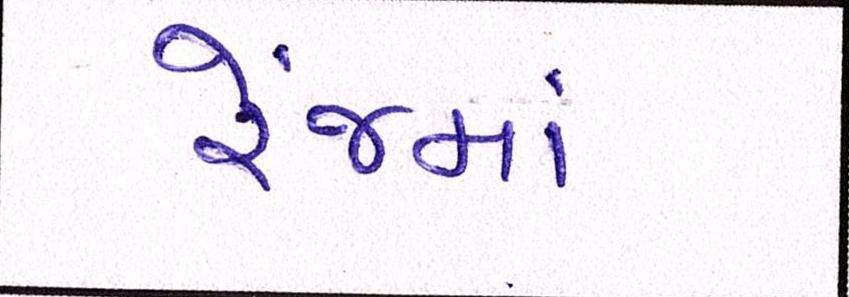 રેંજમાં